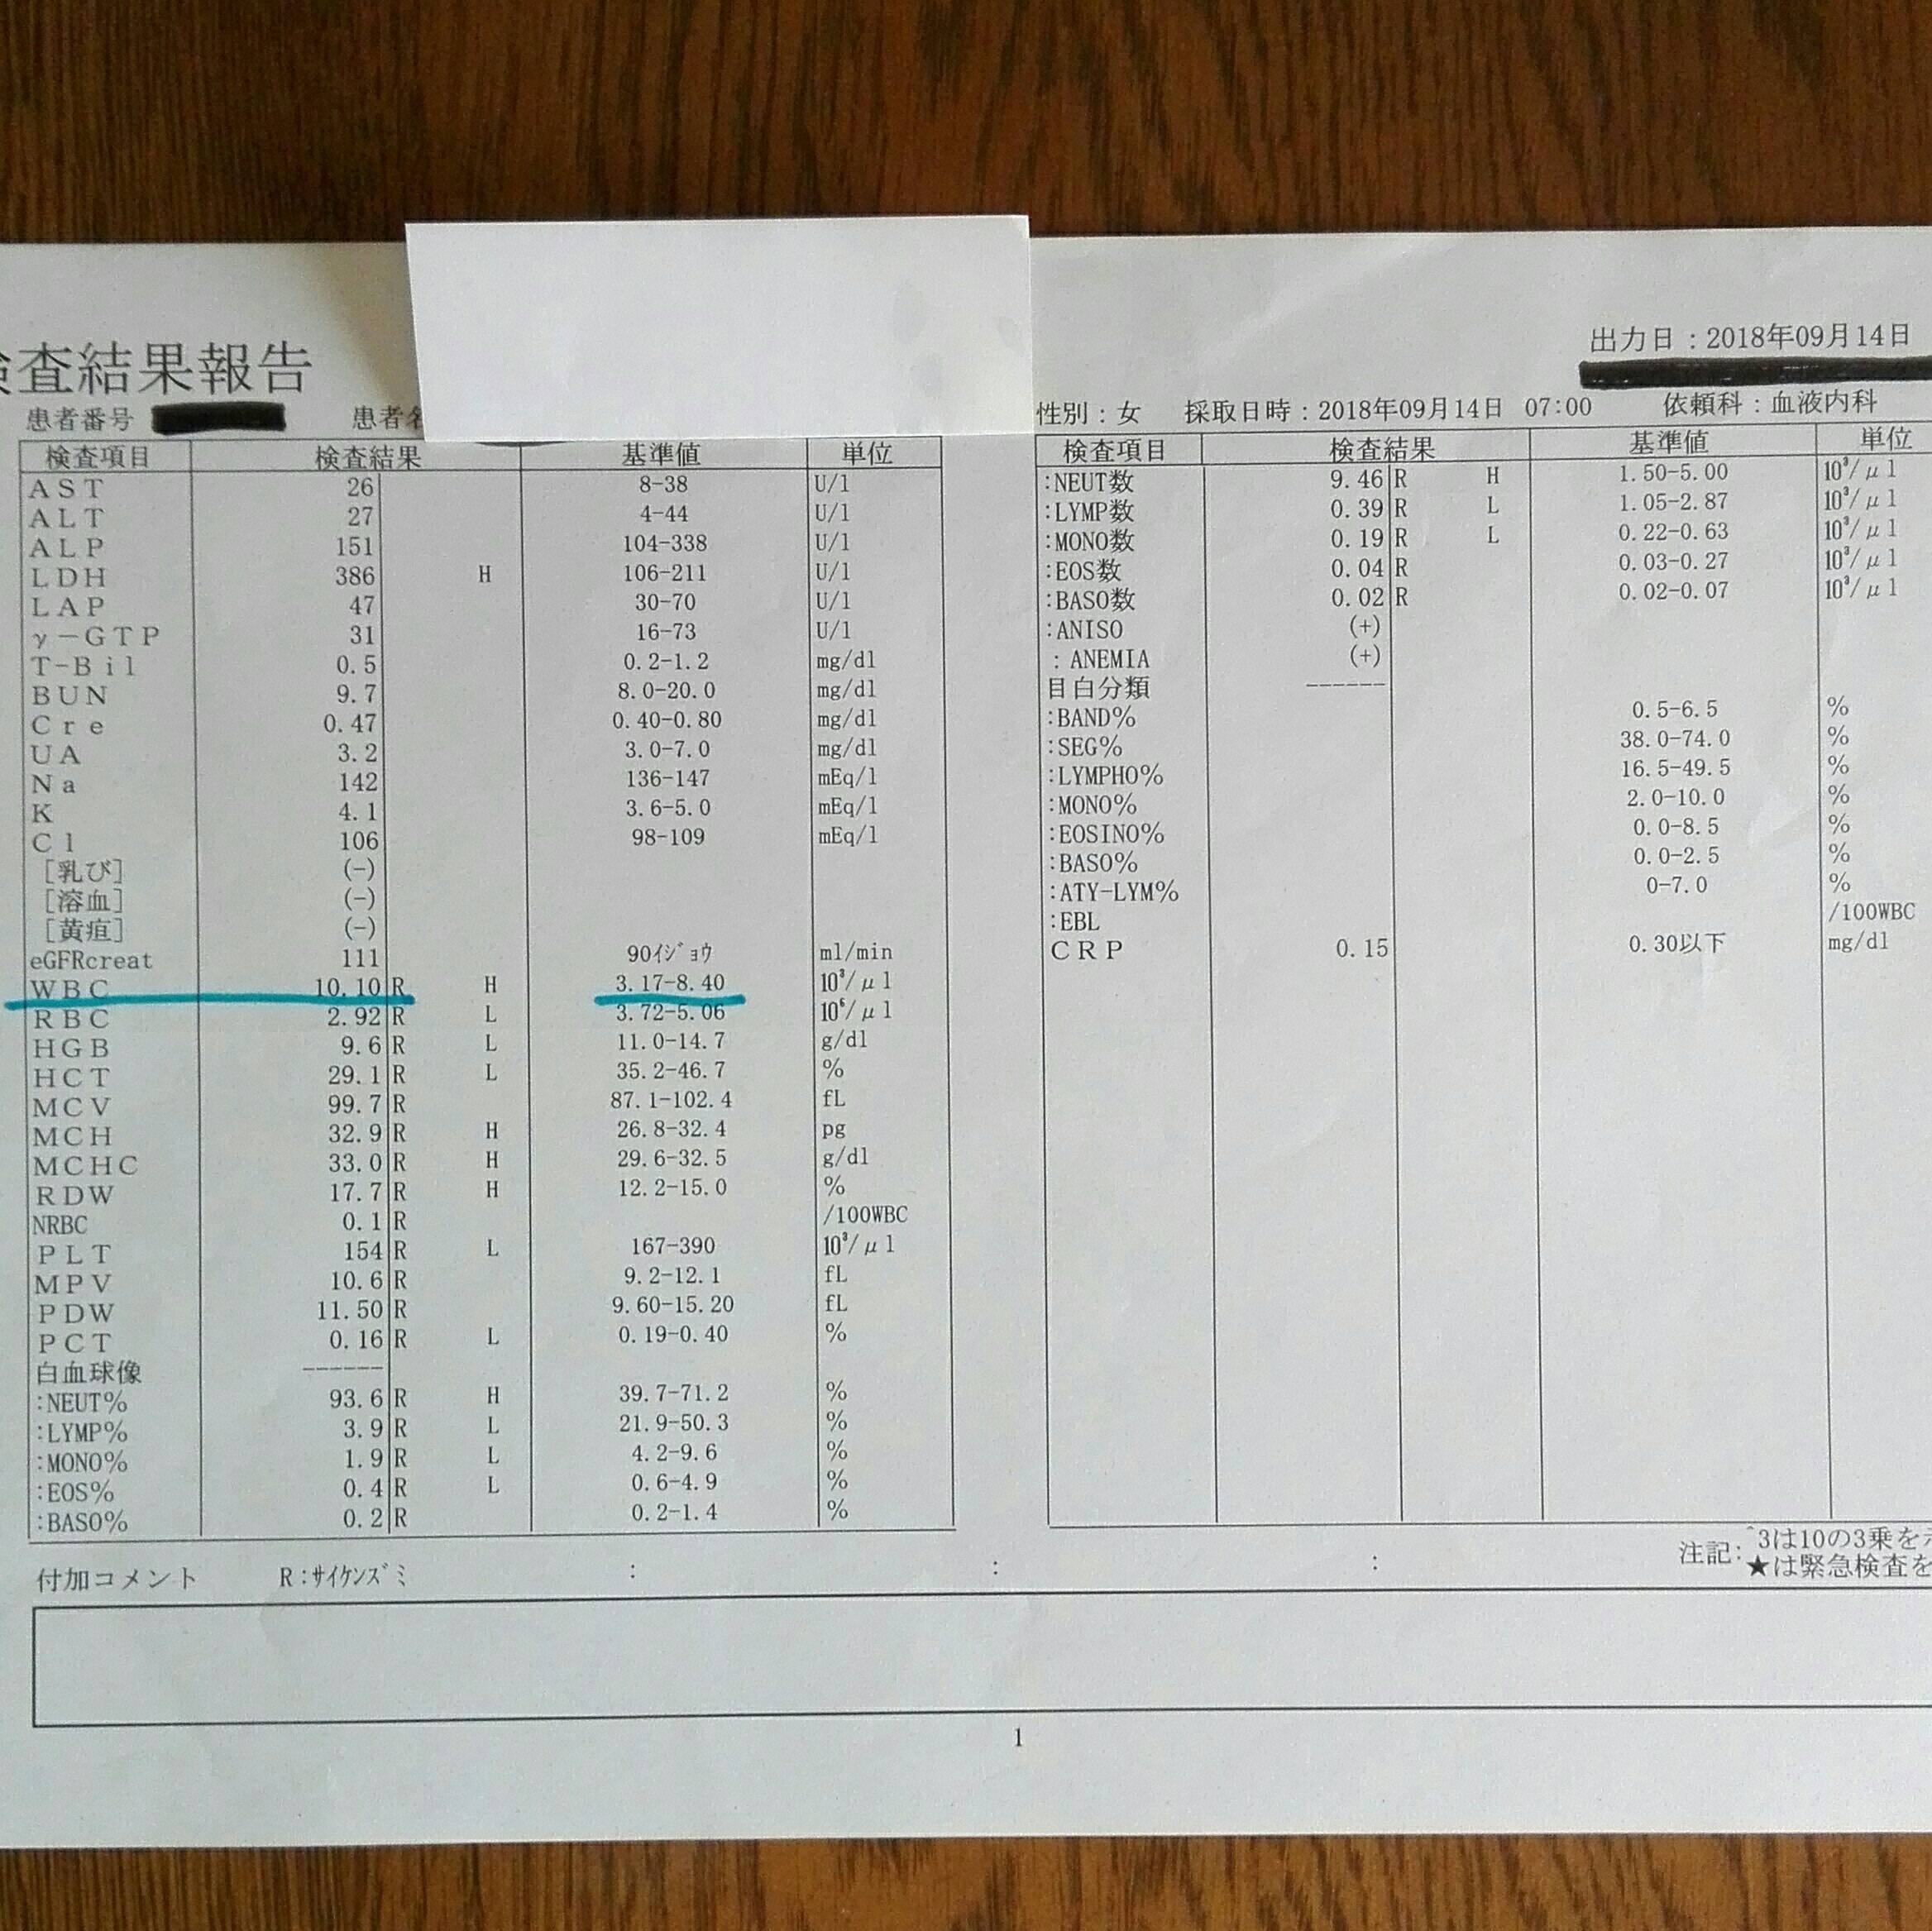 査結果報告
出力日：2018年09月14日
患者番号 患者名 性別：女 採取日時：2018年09月14日 07:00 依頼科：血液内科
検査項目 検査結果 基準値 単位
AST 26 8-38 U/l
ALT 27 4-44 U/l
ALP 151 104-338 U/l
LDH 386 H 106-211 U/l
LAP 47 30-70 U/l
γ-GTP 31 16-73 U/l
T-Bil 0.5 0.2-1.2 mg/dl
BUN 9.7 8.0-20.0 mg/dl
Cre 0.47 0.40-0.80 mg/dl
UA 3.2 3.0-7.0 mg/dl
Na 142 136-147 mEq/l
K 4.1 3.6-5.0 mEq/l
Cl 106 98-109 mEq/l
［乳び］ (-)
［溶血］ (-)
［黄疸］ (-)
eGFRcreat 111 90ｲｼﾞｮｳ ml/min
WBC 10.10 R H 3.17-8.40 10³/μl
RBC 2.92 R L 3.72-5.06 10⁶/μl
HGB 9.6 R L 11.0-14.7 g/dl
HCT 29.1 R L 35.2-46.7 %
MCV 99.7 R 87.1-102.4 fL
MCH 32.9 R H 26.8-32.4 pg
MCHC 33.0 R H 29.6-32.5 g/dl
RDW 17.7 R H 12.2-15.0 %
NRBC 0.1 R /100WBC
PLT 154 R L 167-390 10³/μl
MPV 10.6 R 9.2-12.1 fL
PDW 11.50 R 9.60-15.20 fL
PCT 0.16 R L 0.19-0.40 %
白血球像 ------
:NEUT% 93.6 R H 39.7-71.2 %
:LYMP% 3.9 R L 21.9-50.3 %
:MONO% 1.9 R L 4.2-9.6 %
:EOS% 0.4 R L 0.6-4.9 %
:BASO% 0.2 R 0.2-1.4 %
検査項目 検査結果 基準値 単位
:NEUT数 9.46 R H 1.50-5.00 10³/μl
:LYMP数 0.39 R L 1.05-2.87 10³/μl
:MONO数 0.19 R L 0.22-0.63 10³/μl
:EOS数 0.04 R 0.03-0.27 10³/μl
:BASO数 0.02 R 0.02-0.07 10³/μl
:ANISO (+)
:ANEMIA (+)
目白分類 ------
:BAND% 0.5-6.5 %
:SEG% 38.0-74.0 %
:LYMPHO% 16.5-49.5 %
:MONO% 2.0-10.0 %
:EOSINO% 0.0-8.5 %
:BASO% 0.0-2.5 %
:ATY-LYM% 0-7.0 %
:EBL /100WBC
CRP 0.15 0.30以下 mg/dl
注記:^3は10の3乗を
★は緊急検査を
付加コメント R:ｻｲｹﾝｽﾞﾐ : : :
1